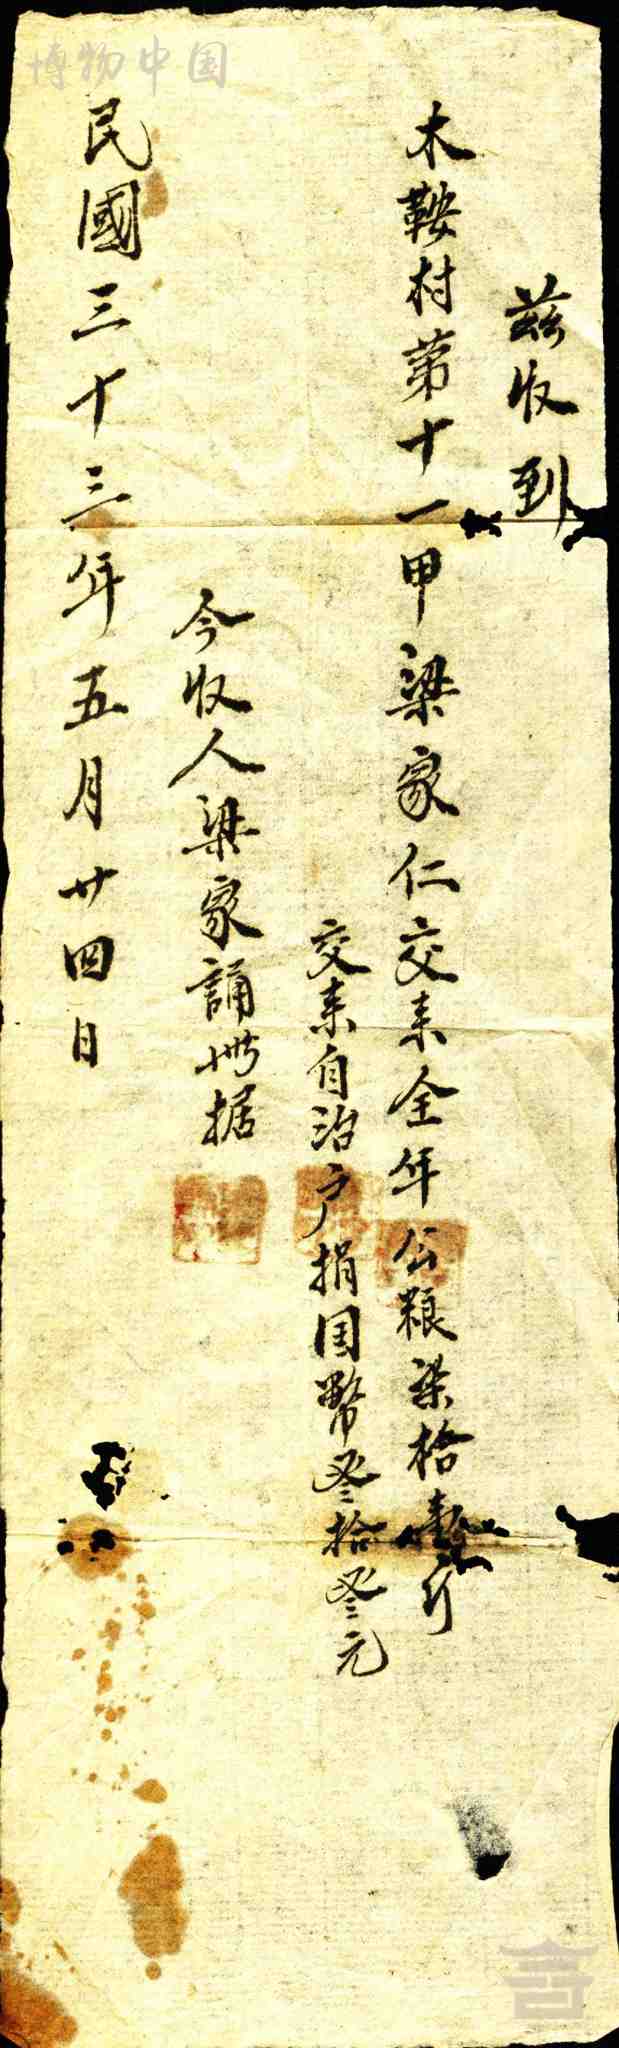 博物中国
兹收到
木鞍村第十一甲梁家仁交来全年公粮柒拾壹斤
交来自治户捐国幣叁拾叁元
今收人梁家誦此据
民國三十三年五月廿四日